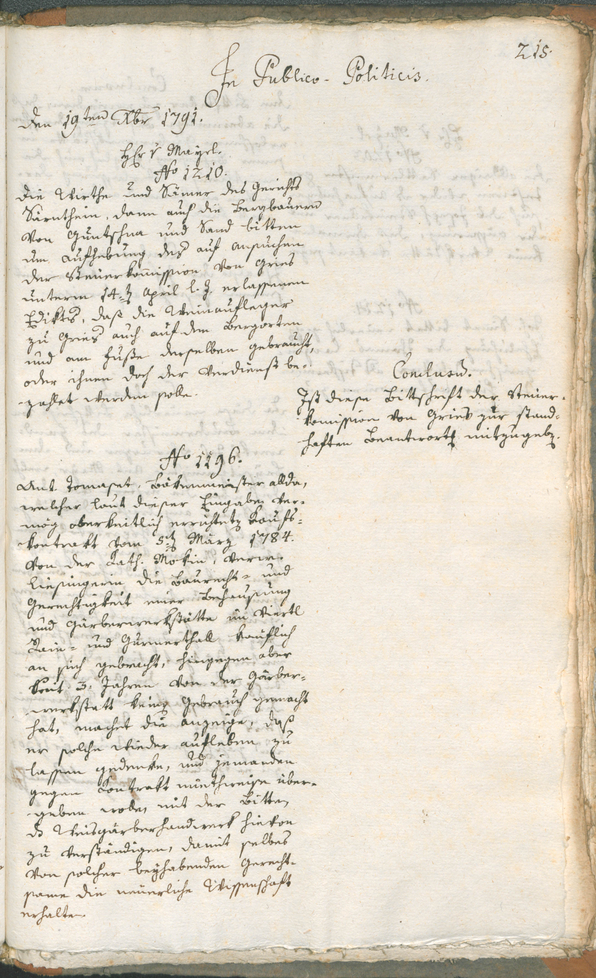 215.
In Publico-Politicis.
Den 19ten Xbr 1791.
H: v Mayrl.
No 1210.
Die Wirthe und Sämer des Gerichts
Sarnthein, dann auch die Bergbauern
von Guntschna und Sand bitten
um Aufhebung des auf Ansuchen
der Steuerkomission von Gries
unterm 14t April l. J. erlassenen
Edikts, daß die Weinaufleger
zu Gries auch auf den Bergorten
und am Fuße derselben gebraucht,
oder ihnen doch der Verdienst be-
zahlet werden solle.
Conclusum.
Ist diese Bittschrift der Steuer-
komission von Gries zur stand-
haften Beantwort mitzugeb.
No 1196.
Ant. Tomaset, Bäkenmeister allda,
welcher laut dieser Eingabe ver-
mög oberkeitlich errichtet Kaufs-
kontrakt vom 5t März 1784.
von der Kath. Mokin, verw.
die Baurecht- und
Gerechtigkeit einer Behausung
und Gärberwerkstätte im Viertl
Zain- und Gumerthall käuflich
an sich gebracht, hingegen aber
seit 3 Jahren von der Gärber-
werkstatt keine Gebrauch gemacht
hat, macht die Anzeige, daß
er solche wieder aufleben zu
lassen gedenke, und jemanden
gegen Kontrakt miethweise über-
geben wolle, mit der Bitte,
d Weisgärberhandwerk hievon
zu verständigen, damit selbes
von solcher beyhabenden Gerecht-
same die neuerliche Wissenschaft
erhalte.